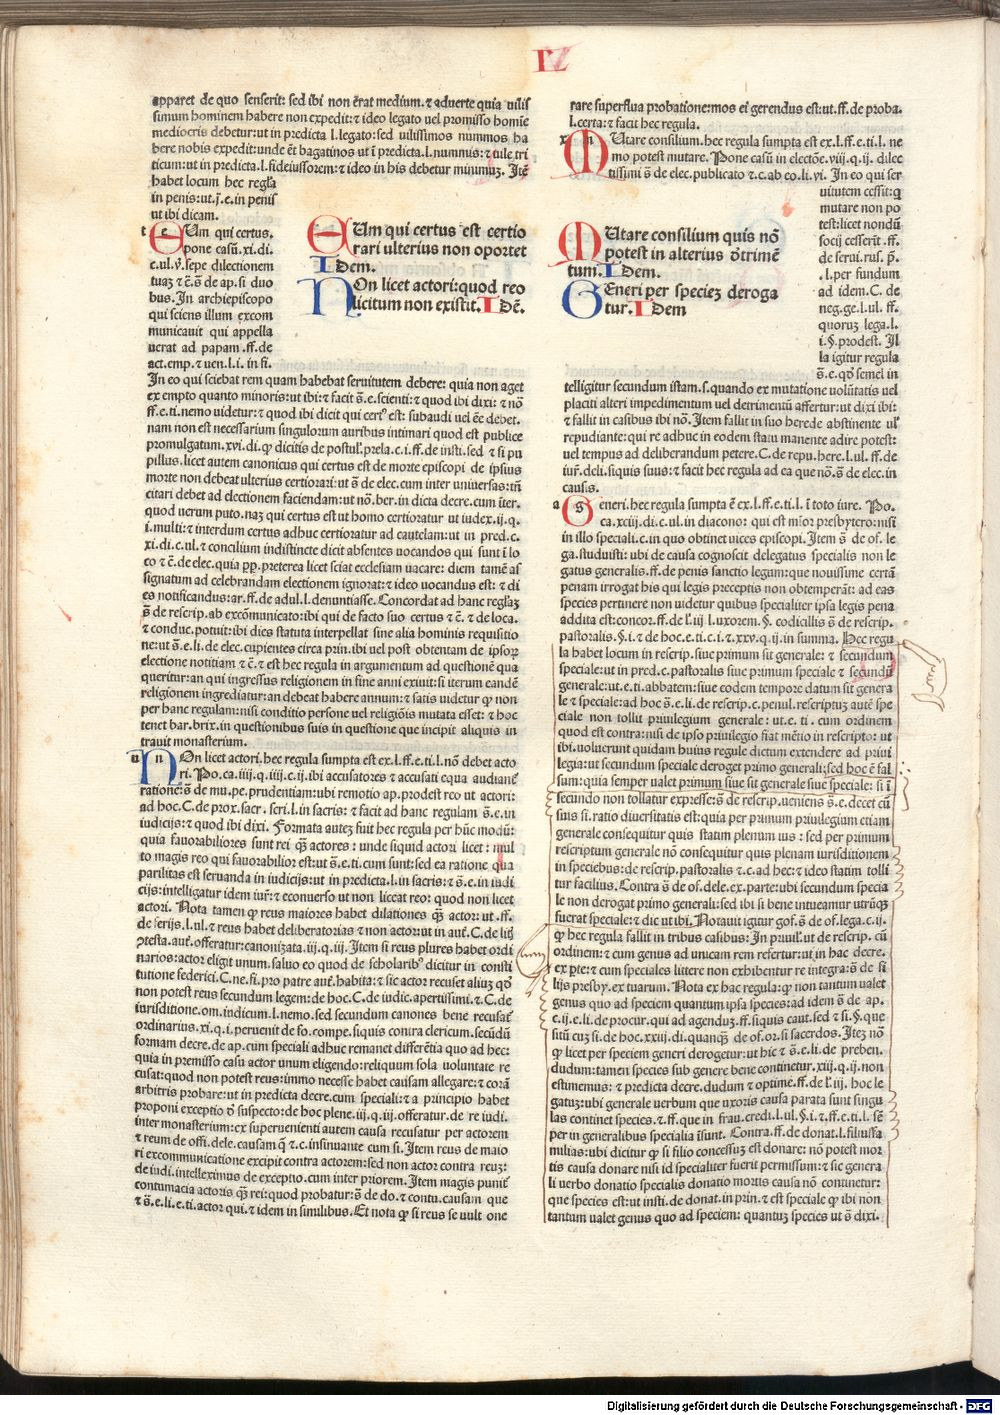 apparet de quo senserit: sed ibi non ērat medium. ⁊ aduerte quia uilis
simum hominem habere non expedit: ⁊ ideo legato uel promisso homīe
mediocris debetur: ut in predicta l. legato: sed uilissimos nummos ha
bere nobis expedit: unde ēt bagatinos ut ī predicta. l. nummus: ⁊ uile tri
ticum: ut in predicta. l. fideiussorem: ⁊ ideo in his debetur minimuz. Itē
habet locum hec regl'a
in penis: ut. j. e. in penis
ut ibi dicam.
EUm qui certus.
pone casū. xi. di.
c. ul. ꝟ. sepe dilectionem
tuaz ⁊ c̄. s̄ de ap. si duo
bus. In archiepiscopo
qui sciens illum excom
municauit qui appella
uerat ad papam. ff. de
act. emp. ⁊ uen. l. i. in fi.
EUm qui certus est certio
rari ulterius non oportet
IDem.
NOn licet actori: quod reo
licitum non existit. IDē.
In eo qui sciebat rem quam habebat seruitutem debere: quia non aget
ex empto quanto minoris: ut ibi: ⁊ facit s̄. e. scienti: ⁊ quod ibi dixi: ⁊ nō
ff. e. ti. nemo uidetur: ⁊ quod ibi dicit qui cert' est: subaudi uel ēe debet.
nam non est necessarium singulorum auribus intimari quod est publice
promulgatum. xvi. di. ꝙ dicitis de postul'. prela. c. i. ff. de insti. sed ⁊ si pu
pillus. licet autem canonicus qui certus est de morte episcopi de ipsius
morte non debeat ulterius certiorari: ut s̄ de elec. cum inter uniuersas: tn̄
citari debet ad electionem faciendam: ut nō. ber. in dicta decre. cum īter.
quod uerum puto. naz qui certus est ut homo certioratur ut iudex. ij. q.
i. multi: ⁊ interdum certus adhuc certioratur ad cautelam: ut in pred. c.
xi. di. c. ul. ⁊ concilium indistincte dicit absentes uocandos qui sunt ī lo
co ⁊ c̄. de elec. quia ꝓp. preterea licet sciat ecclesiam uacare: diem tamē as
signatum ad celebrandam electionem ignorat: ⁊ ideo uocandus est: ⁊ di
es notificandus: ar. ff. de adul. l. denuntiasse. Concordat ad hanc regl'az
s̄ de rescrip. ab excōmunicato: ibi qui de facto suo certus ⁊ c̄. ⁊ de loca.
⁊ conduc. potuit: ibi dies statuta interpellat sine alia hominis requisitio
ne: ut s̄. e. li. de elec. cupientes circa prin. ibi uel post obtentam de ipsorz
electione notitiam ⁊ c̄. ⁊ est hec regula in argumentum ad questionē qua
queritur: an qui ingressus religionem in fine anni exiuit: si iterum eandē
religionem ingrediatur: an debeat habere annum: ⁊ satis uidetur ꝙ non
per hanc regulam: nisi conditio persone uel religiōis mutata esset: ⁊ hoc
tenet bar. brix. in questionibus suis in questione que incipit aliquis in
trauit monasterium.
NOn licet actori. hec regula sumpta est ex. l. ff. e. ti. l. nō debet acto
ri. Po. ca. iiij. q. iiij. c. ij. ibi accusatores ⁊ accusati equa audianē
ratione: s̄ de mu. pe. prudentiam: ubi remotio ap. prodest reo ut actori:
ad hoc. C. de prox. sacr. scri. l. in sacris: ⁊ facit ad hanc regulam s̄. e. in
iudicijs: ⁊ quod ibi dixi. Formata autez fuit hec regula per hūc modū:
quia fauorabiliores sunt rei q̄ȝ actores: unde siquid actori licet: mul
to magis reo qui fauorabilior est: ut s̄. e. ti. cum sunt: sed ea ratione qua
parilitas est seruanda in iudicijs: ut in predicta. l. in sacris: ⁊ s̄. e. in iudi
cijs: intelligatur idem iur': ⁊ econuerso ut non liceat reo: quod non licet
actori. Nota tamen ꝙ reus maiores habet dilationes q̄ȝ actor: ut. ff.
de ferijs. l. ul. ⁊ reus habet deliberatorias ⁊ non actor: ut in aut'. C. de litis
ꝓtesta. aut'. offeratur: canonizata. iij. q. iij. Item si reus plures habet ordi
narios: actor eligit unum. saluo eo quod de scholarib' dicitur in consti
tutione federici. C. ne. fi. pro patre aut'. habita: ⁊ sic actor recuset aliuz qd'
non potest reus secundum legem: de hoc. C. de iudic. apertissimi. ⁊. C. de
iurisditione. om. indicum. l. nemo. sed secundum canones bene recusat'
ordinarius. xi. q. i. peruenit de fo. compe. siquis contra clericum. secūdū
formam decre. de ap. cum speciali adhuc remanet differētia quo ad hec:
quia in premisso casu actor unum eligendo: reliquum sola uoluntate re
cusat: quod non potest reus: immo necesse habet causam allegare: ⁊ corā
arbitris probare: ut in predicta decre. cum speciali: ⁊ a principio habet
proponi exceptio d' suspecto: de hoc plene. iij. q. iij. offeratur. de re iudi.
inter monasterium: ex superuenienti autem causa recusatur per actorem
⁊ reum de offi. dele. causam q̄ ⁊ c. insinuante cum si. Item reus de maio
ri excommunicatione excipit contra actorem: sed non actor contra reuz:
de iudi. intelleximus de exceptio. cum inter priorem. Item magis punit'
contumacia actoris q̄ȝ rei: quod probatur: s̄ de do. ⁊ contu. causam que
⁊ s̄. e. li. e. ti. actor qui. ⁊ idem in similibus. Et nota ꝙ si reus se uult one
rare superflua probatione: mos ei gerendus est: ut. ff. de proba.
l. certa: ⁊ facit hec regula.
MUtare consilium. hec regula sumpta est ex. l. ff. e. ti. l. ne
mo potest mutare. Pone casū in electōe. viij. q. ij. dilec
tissimi s̄ de elec. publicato ⁊ c. ab eo. li. vi. In eo qui ser
uitutem cessit: q
mutare non po
test: licet nondū
socij cesserit. ff.
de serui. rus. p̄.
l. per fundum
ad idem. C. de
neg. ge. l. ul. ff.
quoruz lega. l.
i. §. prodest. Il
la igitur regula
s̄. e. qd' semel in
MUtare consilium quis nō
potest in alterius dtrimē
tum. IDem.
GEneri per speciez deroga
tur. IDem
telligitur secundum istam. s. quando ex mutatione uolūtatis uel
placiti alteri impedimentum uel detrimentū affertur: ut dixi ibi:
⁊ fallit in casibus ibi nō. Item fallit in suo herede abstinente ul'
repudiante: qui re adhuc in eodem statu manente adire potest:
uel tempus ad deliberandum petere. C. de repu. here. l. ul. ff. de
iur'. deli. siquis suus: ⁊ facit hec regula ad ea que nō. s̄ de elec. in
caus. s.
Generi. hec regula sumpta ē ex. l. ff. e. ti. l. ī toto iure. Po.
ca. xciij. di. c. ul. in diacono: qui est mīor presbytero: nisi
in illo speciali. c. in quo obtinet uices episcopi. Item s̄ de of. le
ga. studuisti: ubi de causa cognoscit delegatus specialis non le
gatus generalis. ff. de penis sanctio legum: que nouissime certā
penam irrogat his qui legis preceptis non obtemperāt: ad eas
species pertinere non uidetur quibus specialiter ipsa legis pena
addita est: concor. ff. de l' iij l. uxorem. §. codicillis s̄ de rescrip.
pastoralis. §. i. ⁊ de hoc. e. ti. c. i. ⁊. xxv. q. ij. in summa. Hec regu
la habet locum in rescrip. siue primum sit generale: ⁊ secundum
speciale: ut in pred. c. pastoralis siue primum speciale ⁊ secundū
generale: ut. e. ti. abbatem: siue codem tempore datum sit genera
le ⁊ speciale: ad hoc s̄. e. li. de rescrip. c. penul. rescriptuz autē spe
ciale non tollit priuilegium generale: ut. e. ti. cum ordinem
quod est contra: nisi de ipso priuilegio fiat mētio in rescripto: ut
ibi. uoluerunt quidam huius regule dictum extendere ad priui
legia: ut secundum speciale deroget primo generali: sed hoc ē fal
sum: quia semper ualet primum siue sit generale siue speciale: si ī
secundo non tollatur expresse: s̄ de rescrip. ueniens s̄. e. decet cū
suis si. ratio diuersitatis est: quia per primum priuilegium etiam
generale consequitur quis statim plenum ius: sed per primum
rescriptum generale nō consequitur quis plenam iurisditionem
in speciebus: de rescrip. pastoralis ⁊ c. ad hec: ⁊ ideo statim tolli
tur facilius. Contra s̄ de of. dele. ex. parte: ubi secundum specia
le non derogat primo generali: sed ibi si bene intueamur utrūq̄ȝ
fuerat speciale: ⁊ dic ut ibi. Notauit igitur gof. s̄ de of. lega. c. ij.
ꝙ hec regula fallit in tribus casibus: In priuil'. ut de rescrip. cū
ordinem: ⁊ cum genus ad unicam rem refertur: ut in hac decre.
ex pte: ⁊ cum speciales littere non exhibentur re integra: s̄ de fi
lijs presby. ex tuarum. Nota ex hac regula: ꝙ non tantum ualet
genus quo ad speciem quantum ipsa species: ad idem s̄ de ap.
c. ij. e. li. de procur. qui ad agenduz. ff. siquis caut. sed ⁊ si. §. que
situ cuz si. de hoc. xxiij. di. quanq̄ȝ de of. or. si sacerdos. Itez nō
ꝙ licet per speciem generi derogetur: ut hic ⁊ s̄. e. li. de preben.
dudum: tamen species sub genere bene continetur. xiij. q. ij. non
estimemus: ⁊ predicta decre. dudum ⁊ optime. ff. de l' iij. hoc le
gatuz: ubi generale uerbum que uxoris causa parata sunt singu
las continet species. ⁊. ff. que in frau. credi. l. ul. §. i. ⁊. ff. e. ti. l. sē
per in generalibus specialia īsunt. Contra. ff. de donat. l. filiusfa
milias: ubi dicitur ꝙ si filio concessuz est donare: nō potest mor
tis causa donare nisi id specialiter fuerit permissum: ⁊ sic genera
li uerbo donatio specialis donatio mortis causa nō continetur:
que species est: ut insti. de donat. in prin. ⁊ est speciale ꝙ ibi non
tantum ualet genus quo ad speciem: quantuz species ut s̄ dixi.
Digitalisierung gefördert durch die Deutsche Forschungsgemeinschaft - DFG